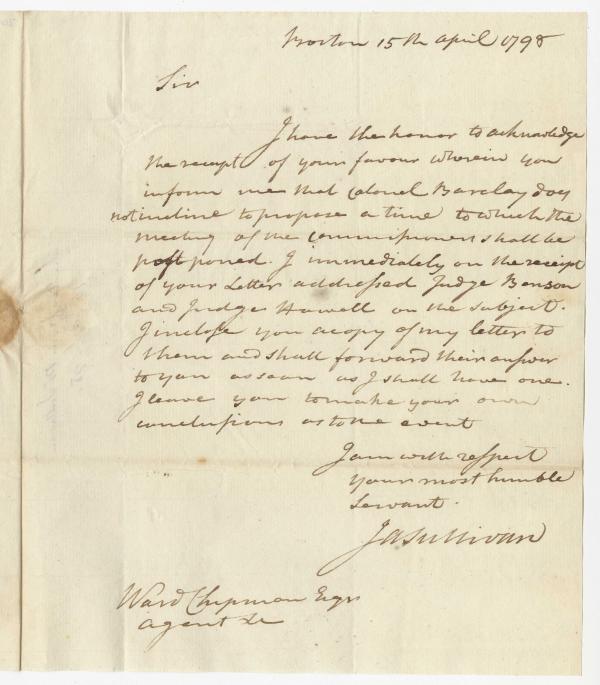 Boston 15th April 1798
Sir
I have the honor to acknowledge
the receipt of your favour wherein you
inform me that Colonel Barclay does
not incline to propose a time to which the
meeting of the Commissioners shall be
postponed. I immediately on the receipt
of your Letter addressed Judge Benson
and Judge Howell on the subject.
I inclose you a copy of my letter to
them and shall forward their answer
to you as soon as I shall have one.
I leave you to make your own
conclusions as to the event
I am with respect
your most humble
Servant.
Ja Sullivan
Ward Chipman Esqr
Agent &c